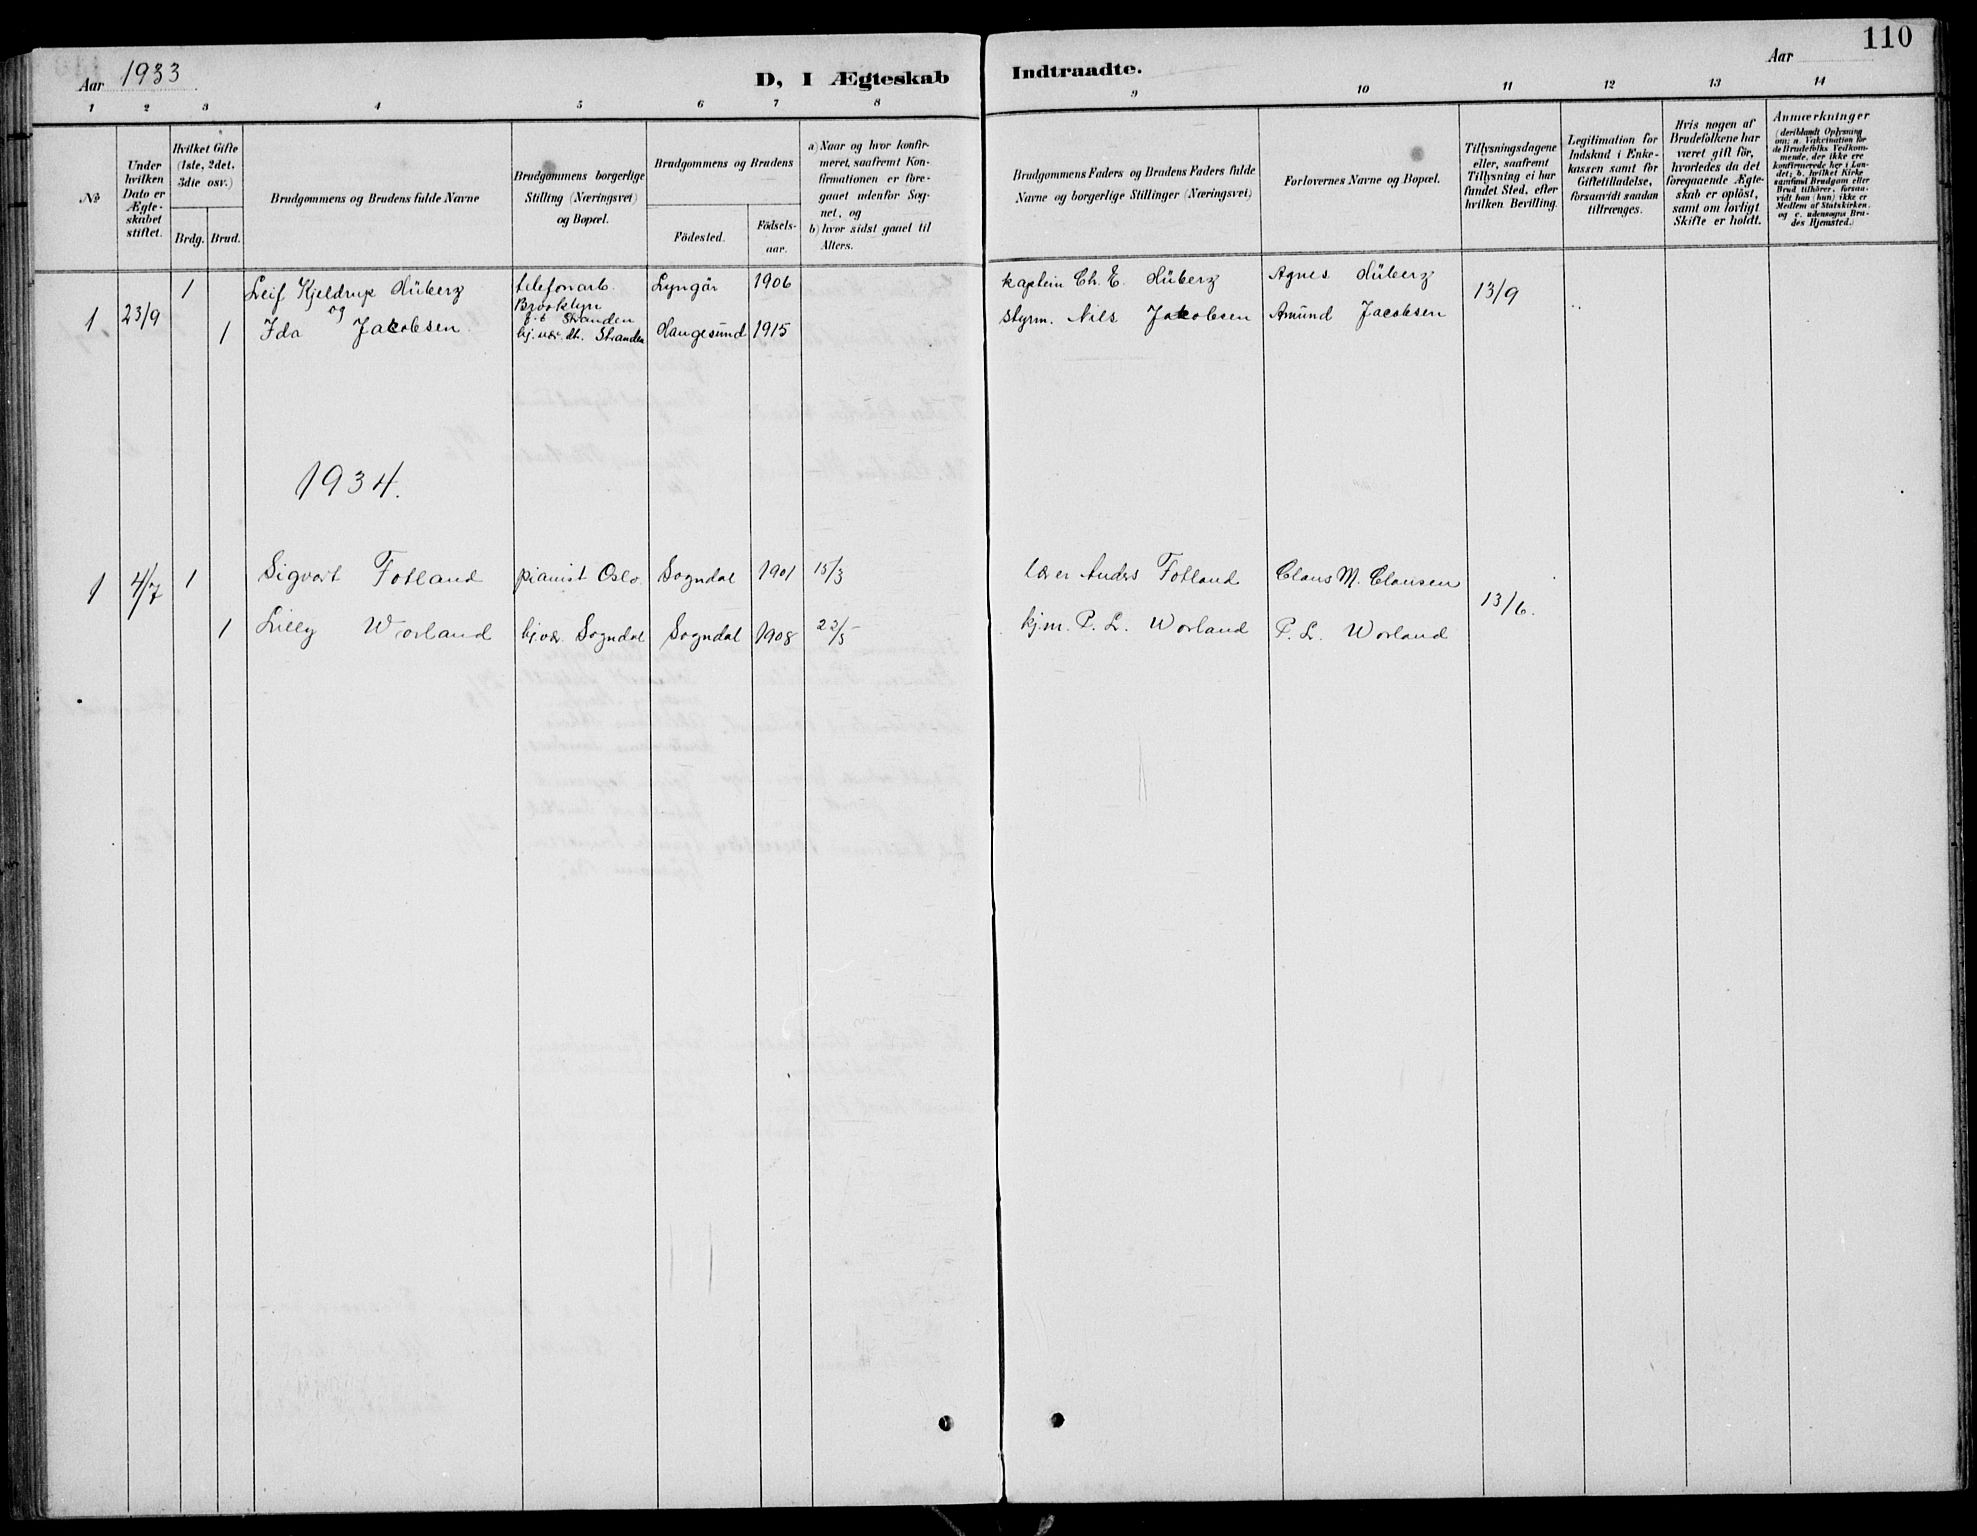 Aar 1933
D, I Ægteskab Indtraadte.
Aar
110
1 2 3 4 5 6 7 8 9 10 11 12 13 14
No
Under hvilken Dato er Ægte-skabet stiftet.
Hvilket Gifte (1ste, 2det, 3die osv.)
Brdg. Brud.
Brudgommens og Brudens fulde Navne
Brudgommens borgerlige Stilling (Næringsvei) og Bopæl.
Brudgommens og Brudens
Födested.
Födsels-aar.
a) Naar og hvor konfir-
meret, saafremt Kon-
firmationen er fore-
gaaet udenfor Sog-
net, og
b) hvor sidst gaaet til
Alters.
Brudgommens Faders og Brudens Faders fulde
Navne og borgerlige Stillinger (Næringsvei)
Forlovernes Navne og Bopæl.
Tillysningsdagene
eller, saafremt
Tillysning ei har
fundet Sted, efter
hvilken Bevilling.
Legitimation for
Indskud i Enke-
kassen samt for
Giftetilladelse,
forsaavidt saadan
tiltrænges.
Hvis nogen af
Brudefolkene har
været gift för,
hvorledes da det
foregaaende Ægte-
skab er oplöst,
samt om lovligt
Skifte er holdt.
Anmærkninger
(deriblandt Oplysning
om: a. Vakcination for
de Brudefolks Vedkom-
mende, der ikke ere
konfirmerede her i Lan-
det; b. hvilket Kirke-
samfund Brudgom eller
Brud tilhörer, forsaa-
vidt han (hun) ikke er
Medlem af Statskirken,
og c. udensogns Bru-
des Hjemsted.)
1 23/9 1 Leif Kjeldrup Hüberg telefonarb. Brooklyn Lyngör 1906 kaptein Ch. E. Hüberg Agnes Hüberg 13/9
og
1 Ida Jakobsen Stranden hj. vær. dtr. Stranden Haugesund 1915 styrm. Nils Jakobsen Amund Jacobsen
1934.
1 4/7 1 Sigvart Fotland pianist Oslo. Sogndal 1901 15/3 lærer Anders Fotland Claus M. Clausen 13/6.
1 Lilly Worland hj.vær. Sogndal Sogndal 1908 22/5 kj.m. P. L. Worland P. L. Worland